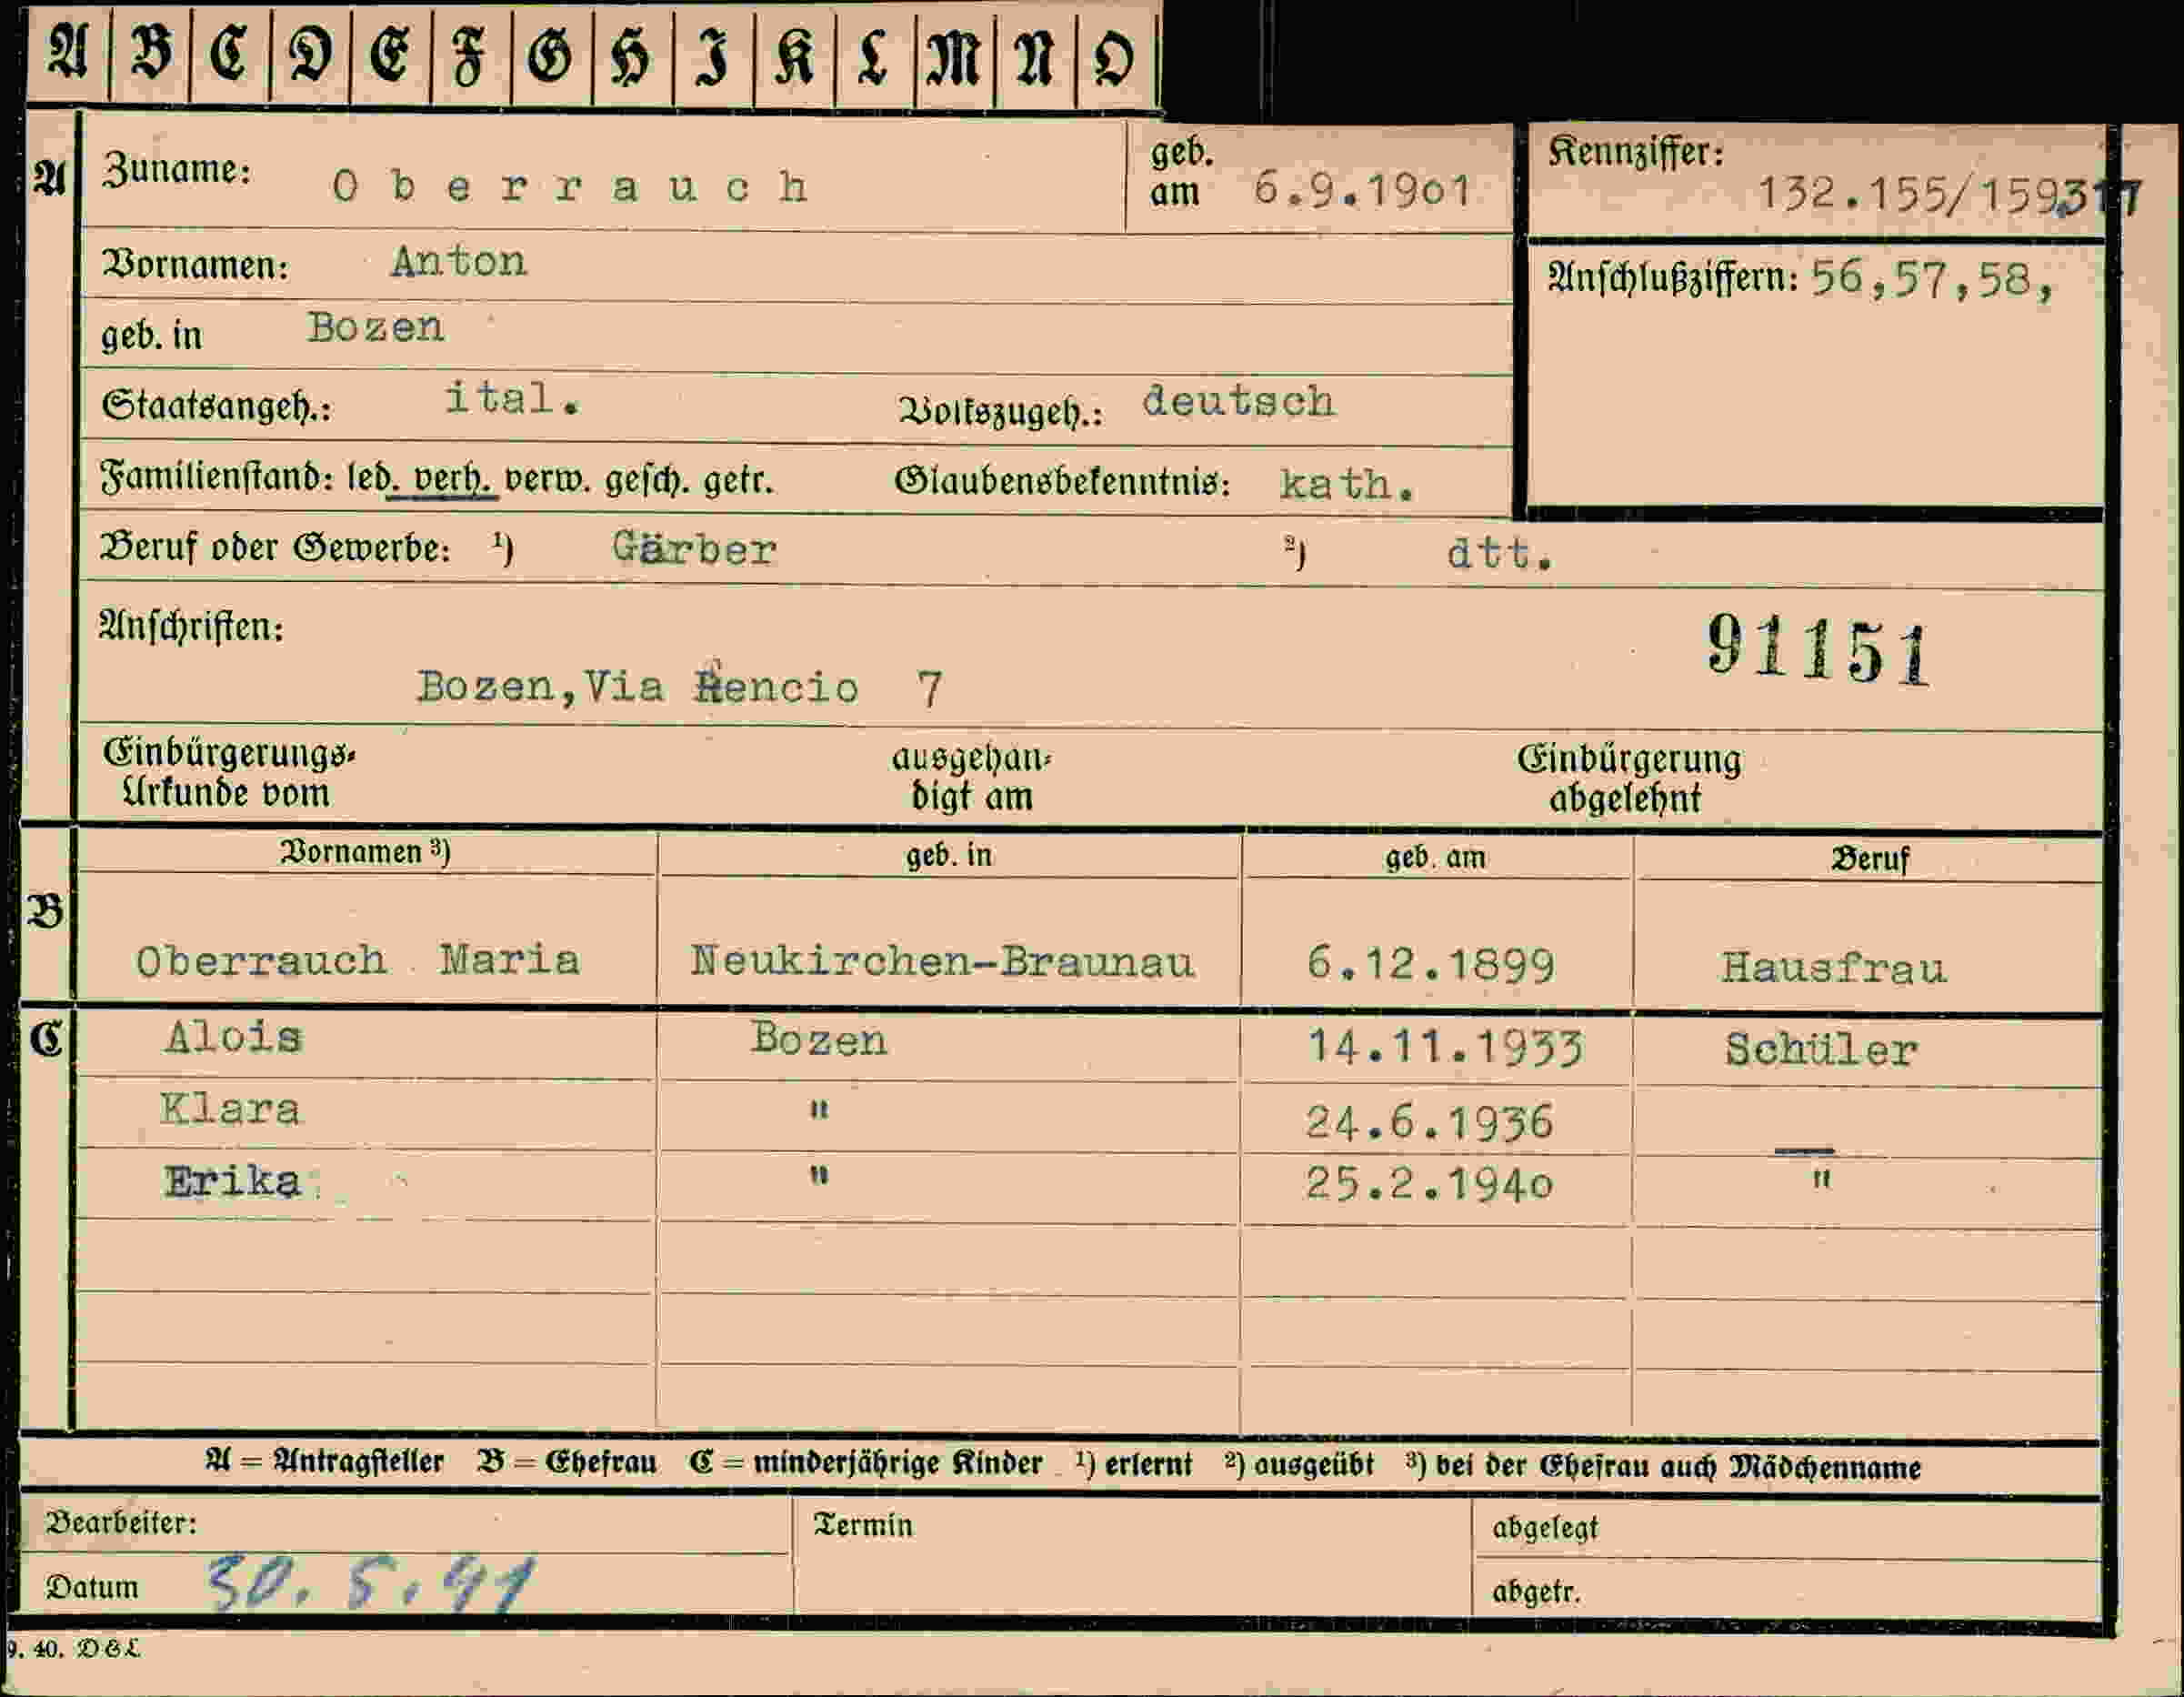 A B C D E F G H I K L M N O
A Zuname: Oberrauch geb. am 6.9.1901 Kennziffer: 132.155/159317
Vornamen: Anton Anschlußziffern: 56,57,58,
geb. in Bozen
Staatsangeh.: ital. Volkszugeh.: deutsch
Familienstand: led. verh. verw. gesch. getr. Glaubensbekenntnis: kath.
Beruf oder Gewerbe: 1) Gärber 2) dtt.
Anschriften: 91151
Bozen,Via Rencio 7
Einbürgerungs- ausgehän- Einbürgerung
Urkunde vom digt am abgelehnt
Vornamen 3) geb. in geb. am Beruf
B
Oberrauch Maria Neukirchen-Braunau 6.12.1899 Hausfrau
C Alois Bozen 14.11.1933 Schüler
Klara " 24.6.1936 —
Erika " 25.2.1940 "
A = Antragsteller B = Ehefrau C = minderjährige Kinder 1) erlernt 2) ausgeübt 3) bei der Ehefrau auch Mädchenname
Bearbeiter: Termin abgelegt
Datum 30.5.41 abgetr.
9. 40. DEL